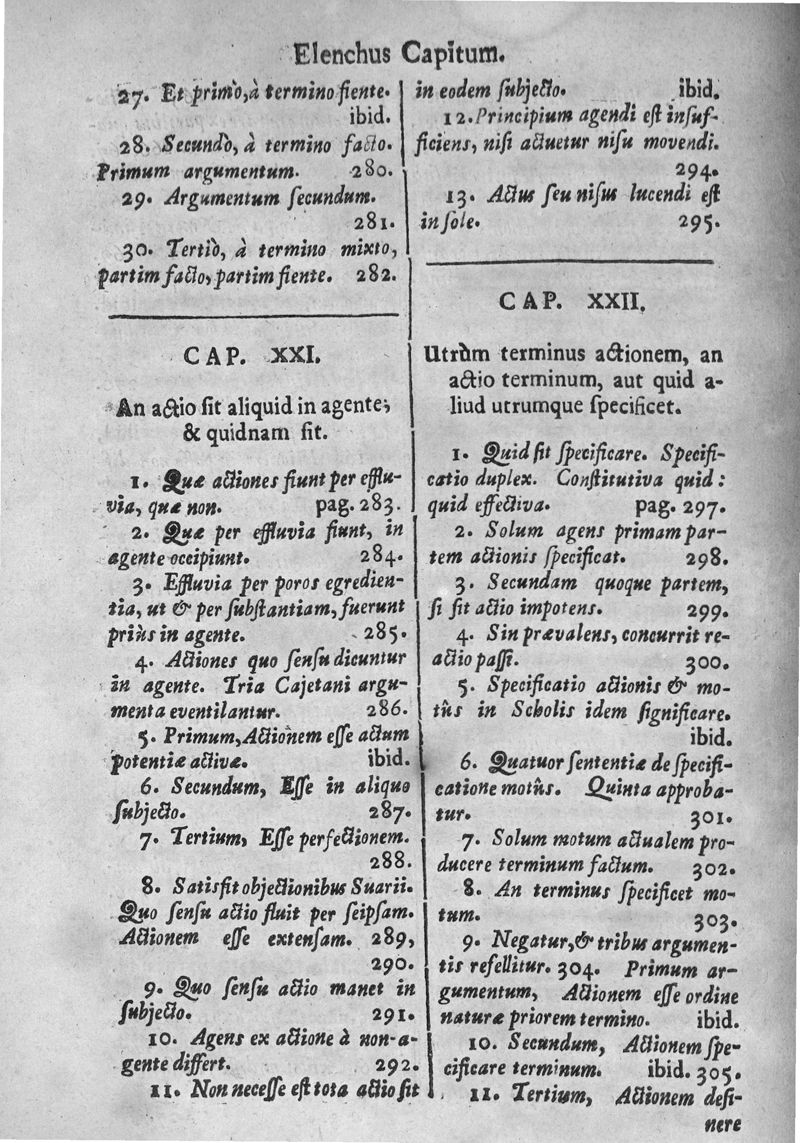 Elenchus Capitum.
27. Et primò, à termino fiente.
ibid.
28. Secundò, à termino facto.
Primum argumentum. 280.
29. Argumentum ſecundum.
281.
30. Tertiò, à termino mixto,
partim facto, partim fiente. 282.
CAP. XXI.
An actio ſit aliquid in agente;
& quidnam ſit.
1. Quæ actiones fiunt per efflu-
via, quæ non. pag. 283.
2. Quæ per effluvia fiunt, in
agente occipiunt. 284.
3. Effluvia per poros egredien-
tia, ut & per ſubſtantiam, fuerunt
priùs in agente. 285.
4. Actiones quo ſenſu dicuntur
in agente. Tria Cajetani argu-
menta eventilantur. 286.
5. Primum, Actionem eſſe actum
potentiæ activæ. ibid.
6. Secundum, Eſſe in aliquo
ſubjecto. 287.
7. Tertium, Eſſe perfectionem.
288.
8. Satisfit objectionibus Suarii.
Quo ſenſu actio fluit per ſeipſam.
Actionem eſſe extenſam. 289,
290.
9. Quo ſenſu actio manet in
ſubjecto. 291.
10. Agens ex actione à non-a-
gente differt. 292.
11. Non neceſſe eſt tota actio ſit
in eodem ſubjecto. ibid.
12. Principium agendi eſt inſuf-
ficiens, niſi actuetur niſu movendi.
294.
13. Actus ſeu niſus lucendi eſt
in ſole. 295.
CAP. XXII.
Utrùm terminus actionem, an
actio terminum, aut quid a-
liud utrumque ſpecificet.
1. Quid ſit ſpecificare. Specifi-
catio duplex. Conſtitutiva quid:
quid effectiva. pag. 297.
2. Solum agens primam par-
tem actionis ſpecificat. 298.
3. Secundam quoque partem,
ſi ſit actio impotens. 299.
4. Sin prævalens, concurrit re-
actio paſſi. 300.
5. Specificatio actionis & mo-
tûs in Scholis idem ſignificare.
ibid.
6. Quatuor ſententiæ de ſpecifi-
catione motûs. Quinta approba-
tur. 301.
7. Solum motum actualem pro-
ducere terminum factum. 302.
8. An terminus ſpecificet mo-
tum. 303.
9. Negatur, & tribus argumen-
tis refellitur. 304. Primum ar-
gumentum, Actionem eſſe ordine
naturæ priorem termino. ibid.
10. Secundum, Actionem ſpe-
cificare terminum. ibid. 305.
11. Tertium, Actionem deſi-
nere